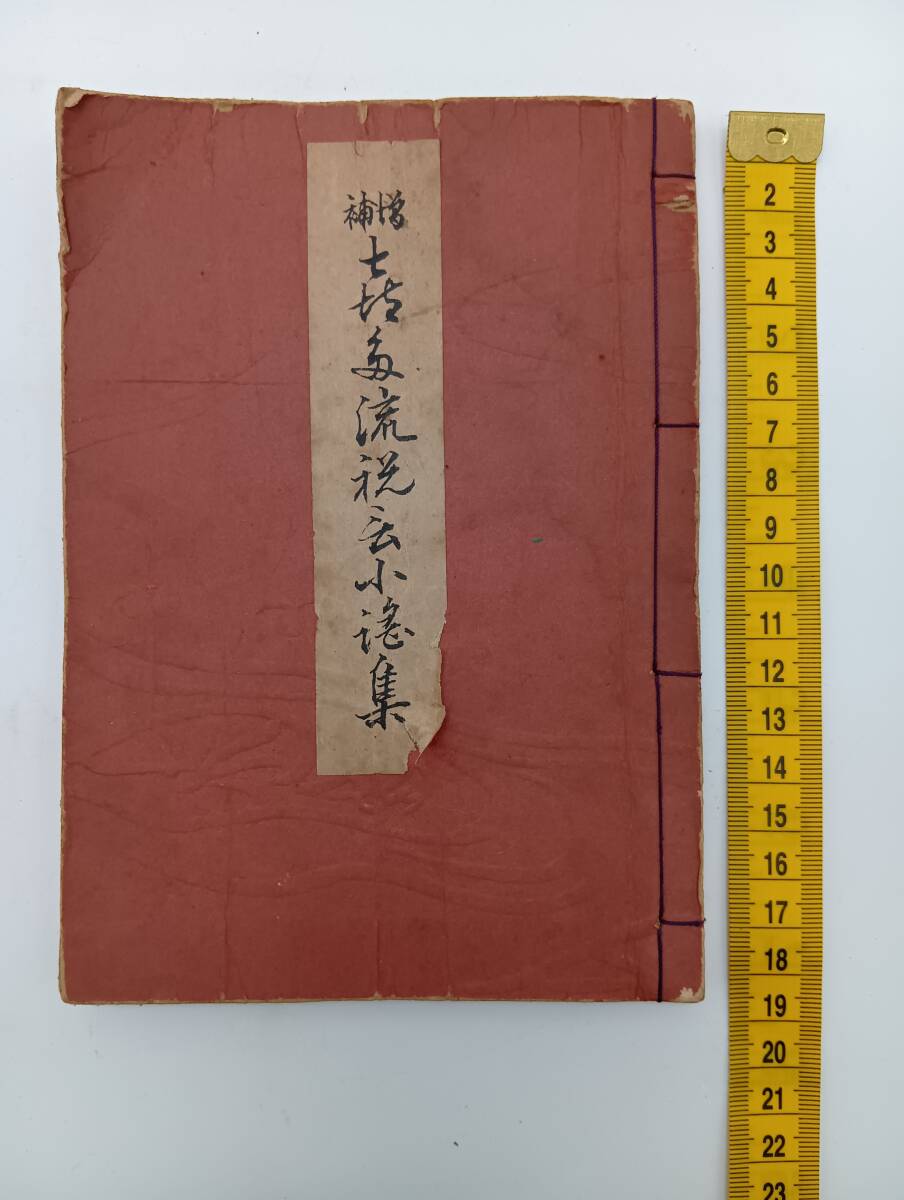 増補
喜多流祝言小謡集
0
2
3
4
5
6
7
8
9
10
11
12
13
14
15
16
17
18
19
20
21
22
23